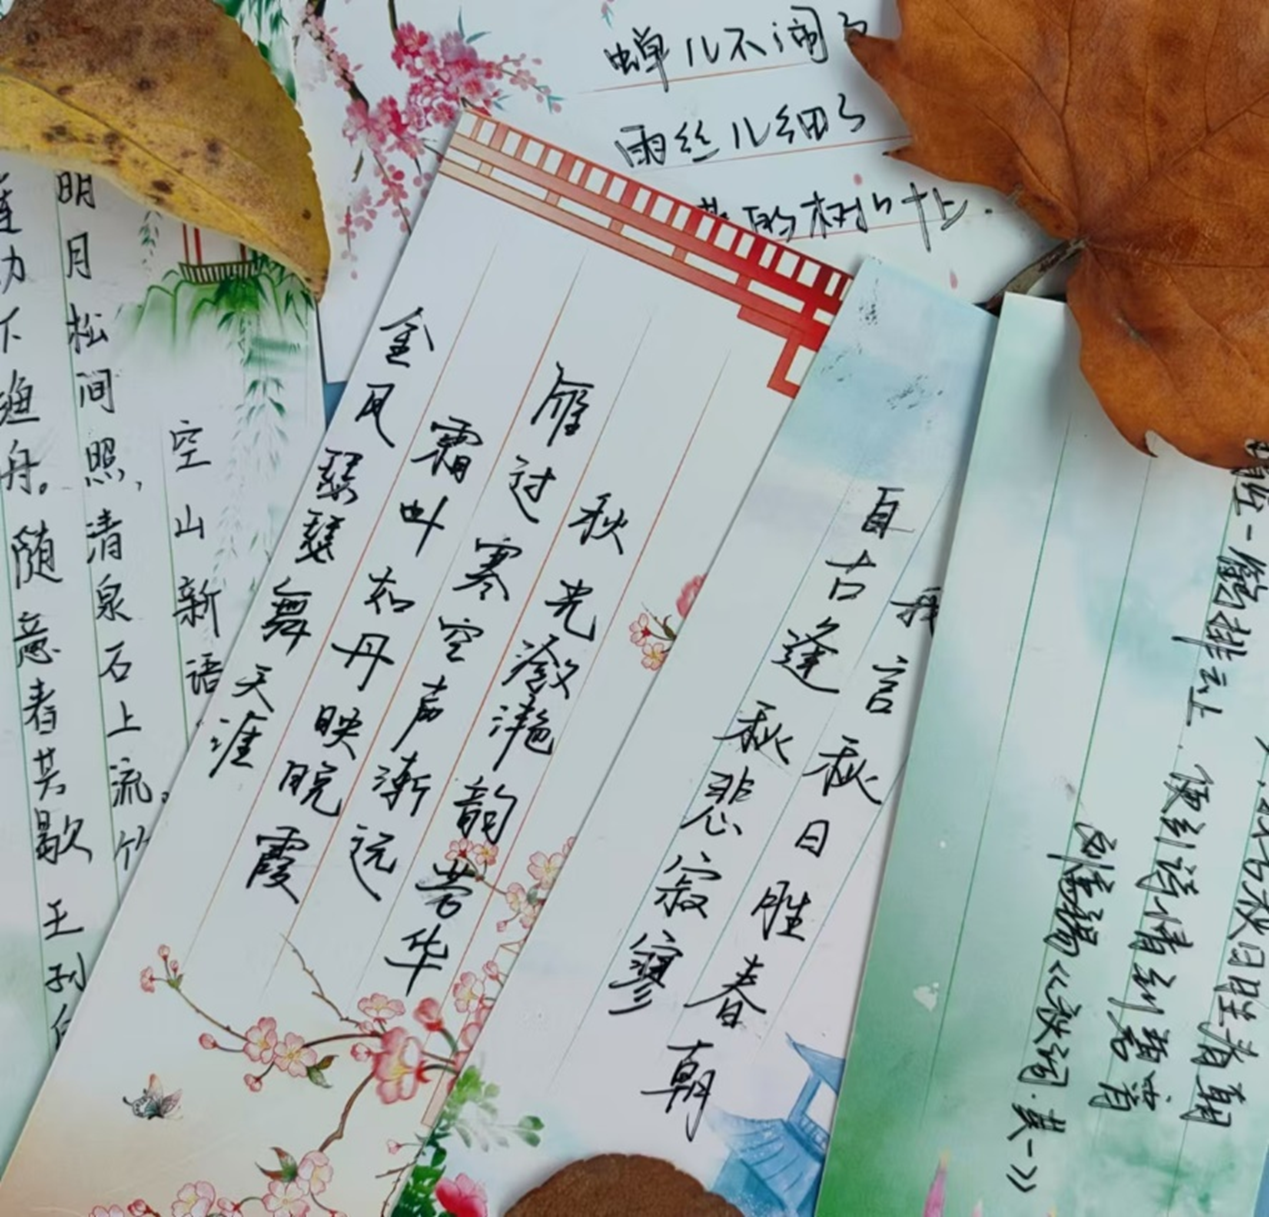 蝉儿不闹了
雨丝儿细了
的树
空山新语
明月松间照,清泉石上流。竹
莲动下渔舟。随意春芳歇 王孙
秋光潋滟韵芳华
雁过寒空声渐远
霜叶如丹映晚霞
金风瑟瑟舞天涯
自古逢秋悲寂寥
我言秋日胜春朝
言秋日胜春朝
一鹤排云上,
便引诗情到碧霄
刘禹锡《秋词·其一》